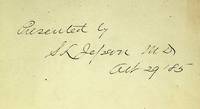 Presented by
S. L. Jepson M.D.
Oct 29 '85